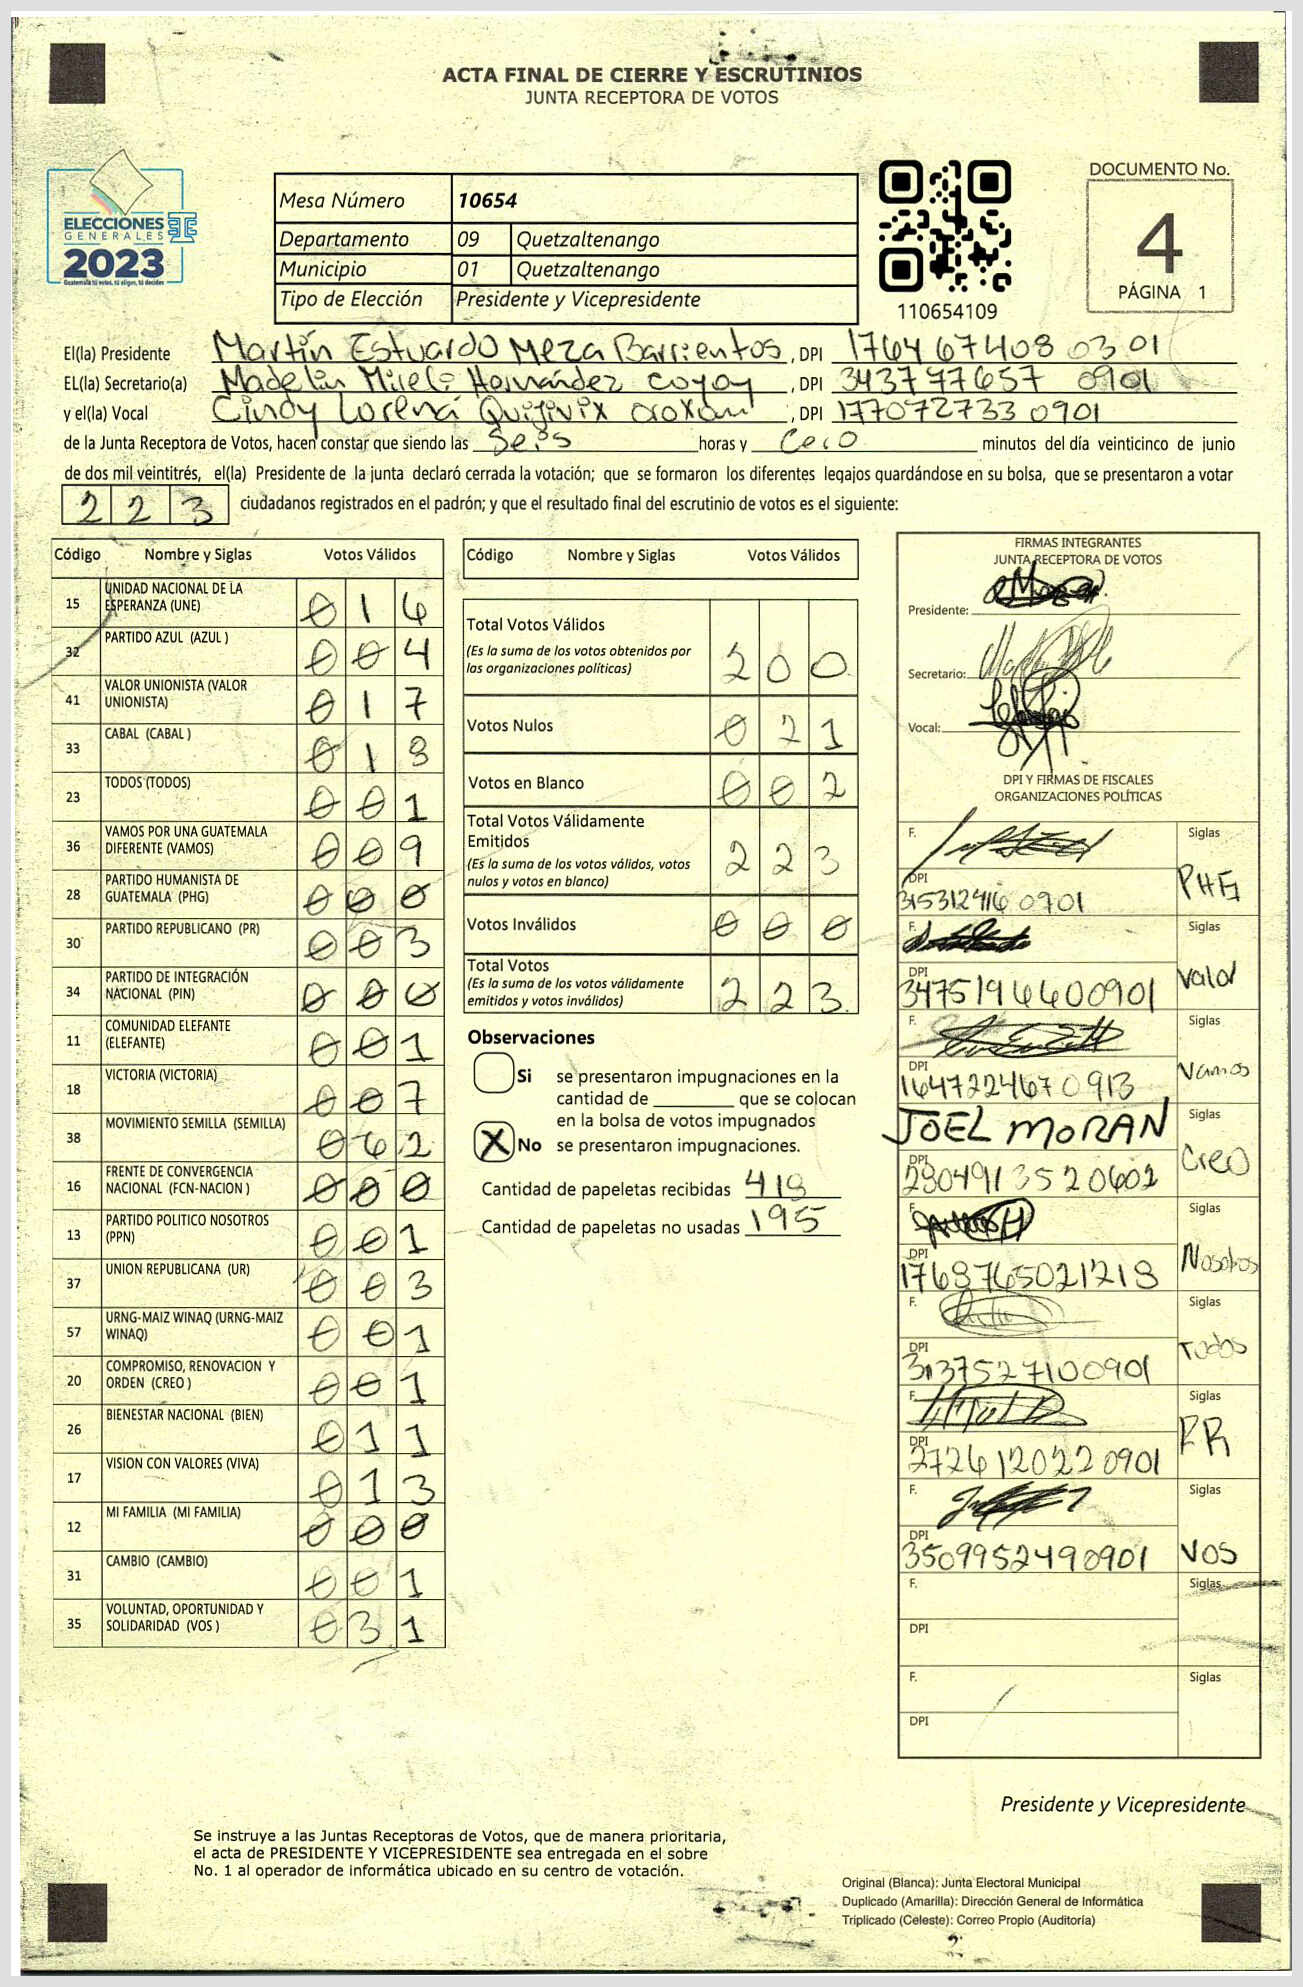 ACTA FINAL DE CIERRE Y ESCRUTINIOS
JUNTA RECEPTORA DE VOTOS
ELECCIONES
GENERALES
2023
Guatemala tú votas, tú eliges, tú decides
Mesa Número 10654
Departamento 09 Quetzaltenango
Municipio 01 Quetzaltenango
Tipo de Elección Presidente y Vicepresidente
110654109
DOCUMENTO No.
4
PÁGINA 1
El(la) Presidente Martín Estuardo Meza Barrientos, DPI 1764 67408 0301
EL(la) Secretario(a) Madelin Hernández coyoy, DPI 343777657 0901
y el(la) Vocal Cindy Lorena Quijivix, DPI 177072733 0901
de la Junta Receptora de Votos, hacen constar que siendo las Seis horas y Cero minutos del día veinticinco de junio
de dos mil veintitrés, el(la) Presidente de la junta declaró cerrada la votación; que se formaron los diferentes legajos guardándose en su bolsa, que se presentaron a votar
223 ciudadanos registrados en el padrón; y que el resultado final del escrutinio de votos es el siguiente:
Código Nombre y Siglas Votos Válidos
15 UNIDAD NACIONAL DE LA ESPERANZA (UNE) 016
32 PARTIDO AZUL (AZUL ) 004
41 VALOR UNIONISTA (VALOR UNIONISTA) 017
33 CABAL (CABAL ) 018
23 TODOS (TODOS) 001
36 VAMOS POR UNA GUATEMALA DIFERENTE (VAMOS) 009
28 PARTIDO HUMANISTA DE GUATEMALA (PHG) 000
30 PARTIDO REPUBLICANO (PR) 003
34 PARTIDO DE INTEGRACIÓN NACIONAL (PIN) 000
11 COMUNIDAD ELEFANTE (ELEFANTE) 001
18 VICTORIA (VICTORIA) 007
38 MOVIMIENTO SEMILLA (SEMILLA) 062
16 FRENTE DE CONVERGENCIA NACIONAL (FCN-NACION ) 000
13 PARTIDO POLITICO NOSOTROS (PPN) 001
37 UNION REPUBLICANA (UR) 003
57 URNG-MAIZ WINAQ (URNG-MAIZ WINAQ) 001
20 COMPROMISO, RENOVACION Y ORDEN (CREO ) 001
26 BIENESTAR NACIONAL (BIEN) 011
17 VISION CON VALORES (VIVA) 013
12 MI FAMILIA (MI FAMILIA) 000
31 CAMBIO (CAMBIO) 001
35 VOLUNTAD, OPORTUNIDAD Y SOLIDARIDAD (VOS ) 031
Código Nombre y Siglas Votos Válidos
Total Votos Válidos 200
(Es la suma de los votos obtenidos por
las organizaciones políticas)
Votos Nulos 021
Votos en Blanco 002
Total Votos Válidamente
Emitidos 223
(Es la suma de los votos válidos, votos
nulos y votos en blanco)
Votos Inválidos 000
Total Votos 223
(Es la suma de los votos válidamente
emitidos y votos inválidos)
Observaciones
Si se presentaron impugnaciones en la
cantidad de ________ que se colocan
en la bolsa de votos impugnados
X No se presentaron impugnaciones.
Cantidad de papeletas recibidas 418
Cantidad de papeletas no usadas 195
FIRMAS INTEGRANTES
JUNTA RECEPTORA DE VOTOS
Presidente:
Secretario:
Vocal:
DPI Y FIRMAS DE FISCALES
ORGANIZACIONES POLÍTICAS
F. Siglas
DPI 315312416 0901 PHG
Siglas
DPI 3475194600901 Valor
F. Siglas
DPI 1647224670913 Vamos
JOEL MORAN Siglas
DPI 2804913520602 Creo
F. Siglas
DPI 1768765021213 Nosotros
F. Siglas
DPI 3137527100901 Todos
F. Siglas
DPI 2726120220901 PR
F. Siglas
DPI 3509952490901 VOS
F. Siglas
DPI
F. Siglas
DPI
Presidente y Vicepresidente
Se instruye a las Juntas Receptoras de Votos, que de manera prioritaria,
el acta de PRESIDENTE Y VICEPRESIDENTE sea entregada en el sobre
No. 1 al operador de informática ubicado en su centro de votación.
Original (Blanca): Junta Electoral Municipal
Duplicado (Amarilla): Dirección General de Informática
Triplicado (Celeste): Correo Propio (Auditoría)